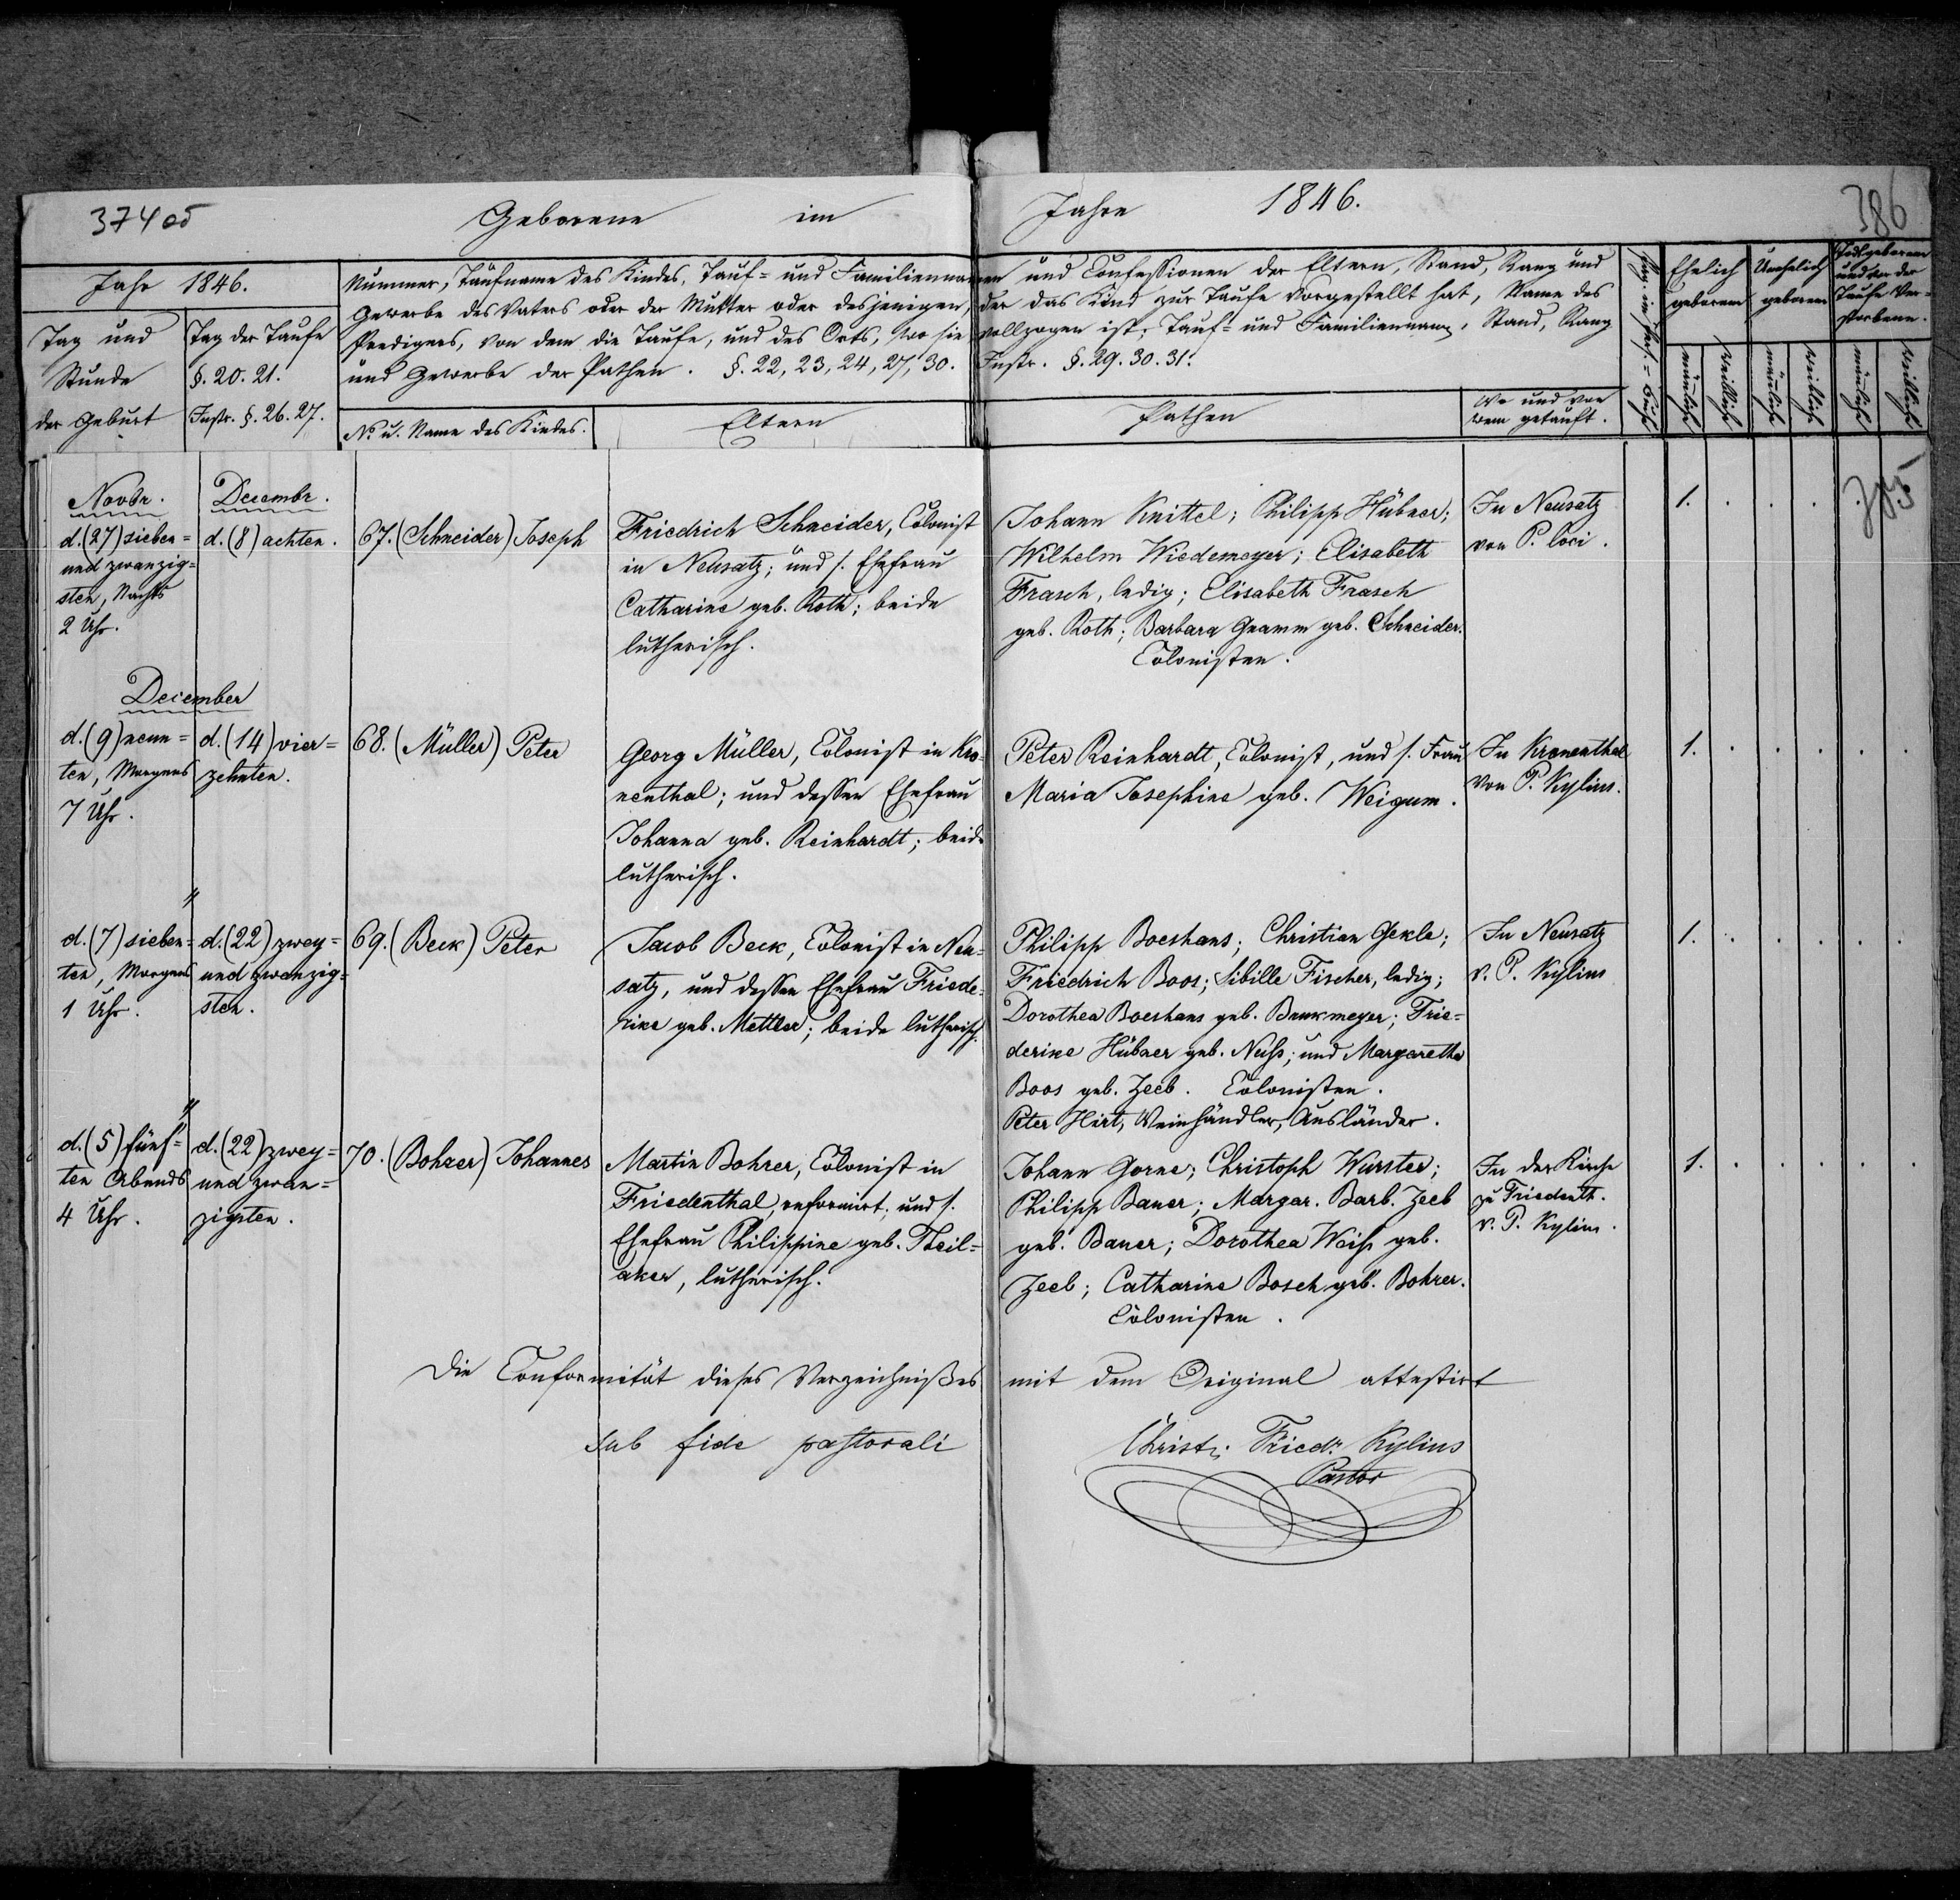 374 об
Geborene im Jahre 1846.
386
Jahr 1846.
Tag und
Stunde
der Geburt
Tag der Taufe
§. 20. 21.
Instr. §. 26. 27.
Nummer, Taufname des Kindes, Tauf= und Familiennamen und Confessionen der Eltern, Stand, Rang und
Gewerbe des Vaters oder der Mutter oder desjenigen, der das Kind zur Taufe vorgestellt hat, Name des
Predigers, von dem die Taufe, und des Orts, wo sie vollzogen ist; Tauf= und Familienname, Stand, Rang
und Gewerbe der Pathen. §. 22, 23, 24, 27, 30. Instr. §. 29. 30. 31.
No. u. Name des Kindes.
Eltern
Pathen
Wo und von
wem getauft.
Ehelich
geboren
Unehelich
geboren
Todtgeborene
und vor der
Taufe Ver=
storbene.
männliche
weibliche
männliche
weibliche
männliche
weibliche
Novbr.
d. (27) sieben=
und zwanzig=
sten, Nachts
2 Uhr.
Decembr.
d. (8) achten.
67. (Schneider) Joseph
Friedrich Schneider, Colonist
in Neusatz; und s. Ehefrau
Catharine geb. Roth; beide
lutherisch.
Johann Knittel; Philipp Hübner;
Wilhelm Wiedemeyer; Elisabeth
Frasch, ledig; Elisabeth Frasch
geb. Roth; Barbara Gramm geb. Schneider.
Colonisten.
In Neusatz
von P. loci.
1. . . .
385
December
d. (9) neun=
ten, Morgens
7 Uhr.
d. (14) vier=
zehnten.
68. (Müller) Peter
Georg Müller, Colonist in Kro=
nenthal; und dessen Ehefrau
Johanna geb. Reinhardt; beide
lutherisch.
Peter Reinhardt, Colonist, und s. Frau
Maria Josephine geb. Weigum.
In Kronenthal
von P. Kylius.
1. . . . . .
"
d. (7) sieben=
ten, Morgens
1 Uhr.
d. (22) zwey=
und zwanzig=
sten.
69. (Beck) Peter
Jacob Beck, Colonist in Neu=
satz, und dessen Ehefrau Friede=
rike geb. Mettler; beide lutherisch.
Philipp Boeshans; Christian Gekle;
Friedrich Boos; Sibille Fischer, ledig;
Dorothea Boeshans geb. Benkmeyer; Frie=
derike Hübner geb. Neuss; und Margaretha
Boos geb. Zeeb. Colonisten.
Peter Hirt, Weinhändler, Ausländer.
In Neusatz
v. P. Kylius
1. . . . . .
"
d. (5) fünf=
ten Abends
4 Uhr.
d. (22) zwey=
und zwan=
zigsten.
70. (Bohrer) Johannes
Martin Bohrer, Colonist in
Friedenthal, reformirt; und s.
Ehefrau Philippine geb. Theil=
aker, lutherisch.
Johann Gorne; Christoph Wurster;
Philipp Bauer; Margar. Barb. Zeeb
geb. Bauer; Dorothea Weiss geb.
Zeeb; Catharine Bosch geb. Bohrer.
Colonisten.
In der Kirche
zu Friedenth.
v. P. Kylius.
1. . . . . .
Die Conformität dieses Verzeichnisses mit dem Original attestirt
sub fide pastorali
Christ. Friedr. Kylius
Pastor